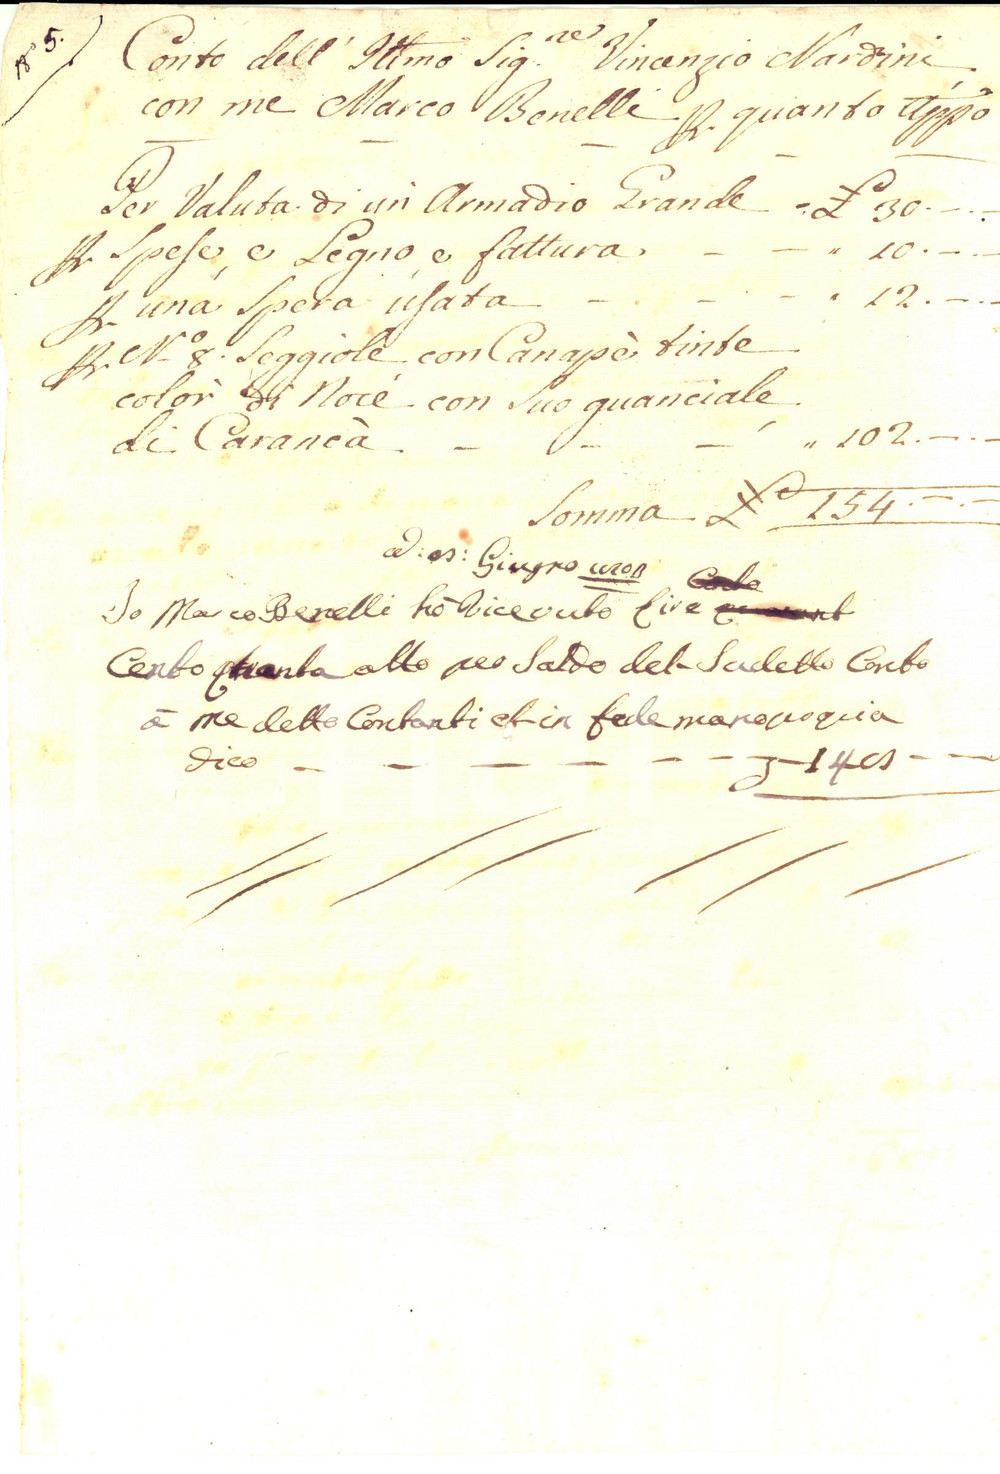 5.
Conto dell' Ill.mo Sig.re Vincenzio Nardini
con me Marco Benelli pr. quanto App.o
Per Valuta di un Armadio Grande - £ 30. - -
pr. Spese, e Legno, e fattura. - - " 10. - -
pr. una Spera usata - - - " 12. - -
pr. N.o 8. Seggiole con Canapè tinte
color di Noce con Suo guanciale
di Carancà - - - " 102. - -
Somma £ 154. - -
Giugno
Io Marco Benelli hò Riceuuto Lire
Cento otto per Saldo del Sudetto Conto
à me detto Contanti et in fede mano propria
dico - - - - - - -